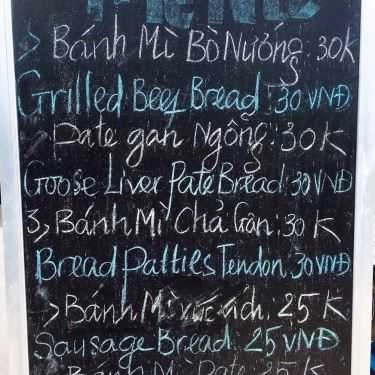 MENU
> Bánh Mì Bò Nướng: 30K
Grilled Beef Bread: 30 VNĐ
Pate gan Ngỗng: 30 K
Goose Liver Pate Bread: 30 VNĐ
3, Bánh Mì Chả Gân: 30 K
Bread Patties Tendon: 30 VNĐ
> Bánh Mì xúc xích: 25 K
Sausage Bread: 25 VNĐ
Bánh Mì Pate: 25 K